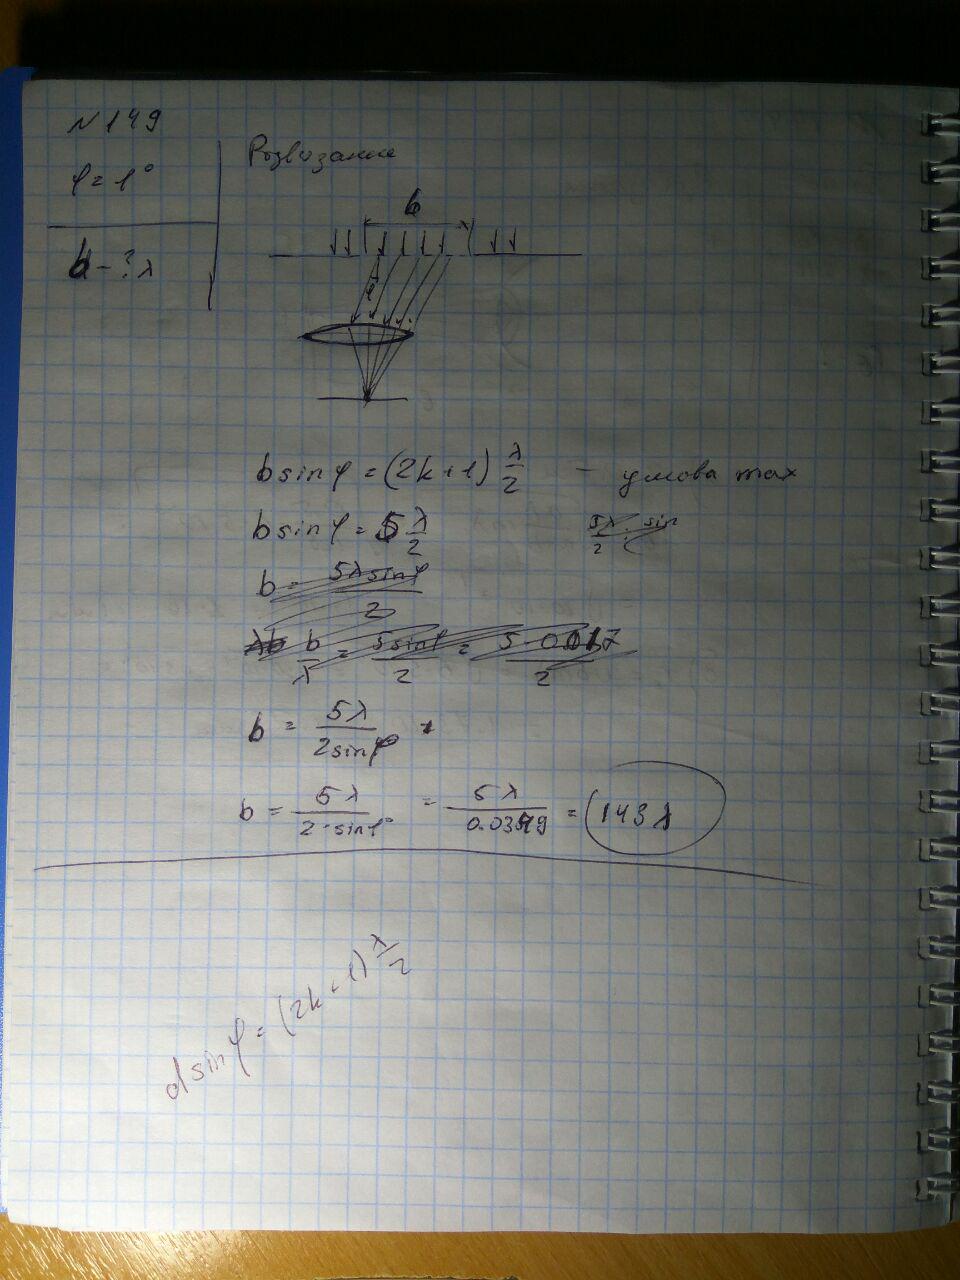 N 149
φ = 1°
b - ? λ
Розвязание
b
b sin φ = (2k + 1) λ/2 - умова max
b sin φ = 5 λ/2
5λ/2 · sin
b = 5λ sin φ / 2
b/λ = 5 sin φ / 2 = 5 · 0.017 / 2
b = 5λ / 2 sin φ
b = 5λ / 2 · sin 1° = 5λ / 0.0349 = 143 λ
d sin φ = (2k + 1) λ/2